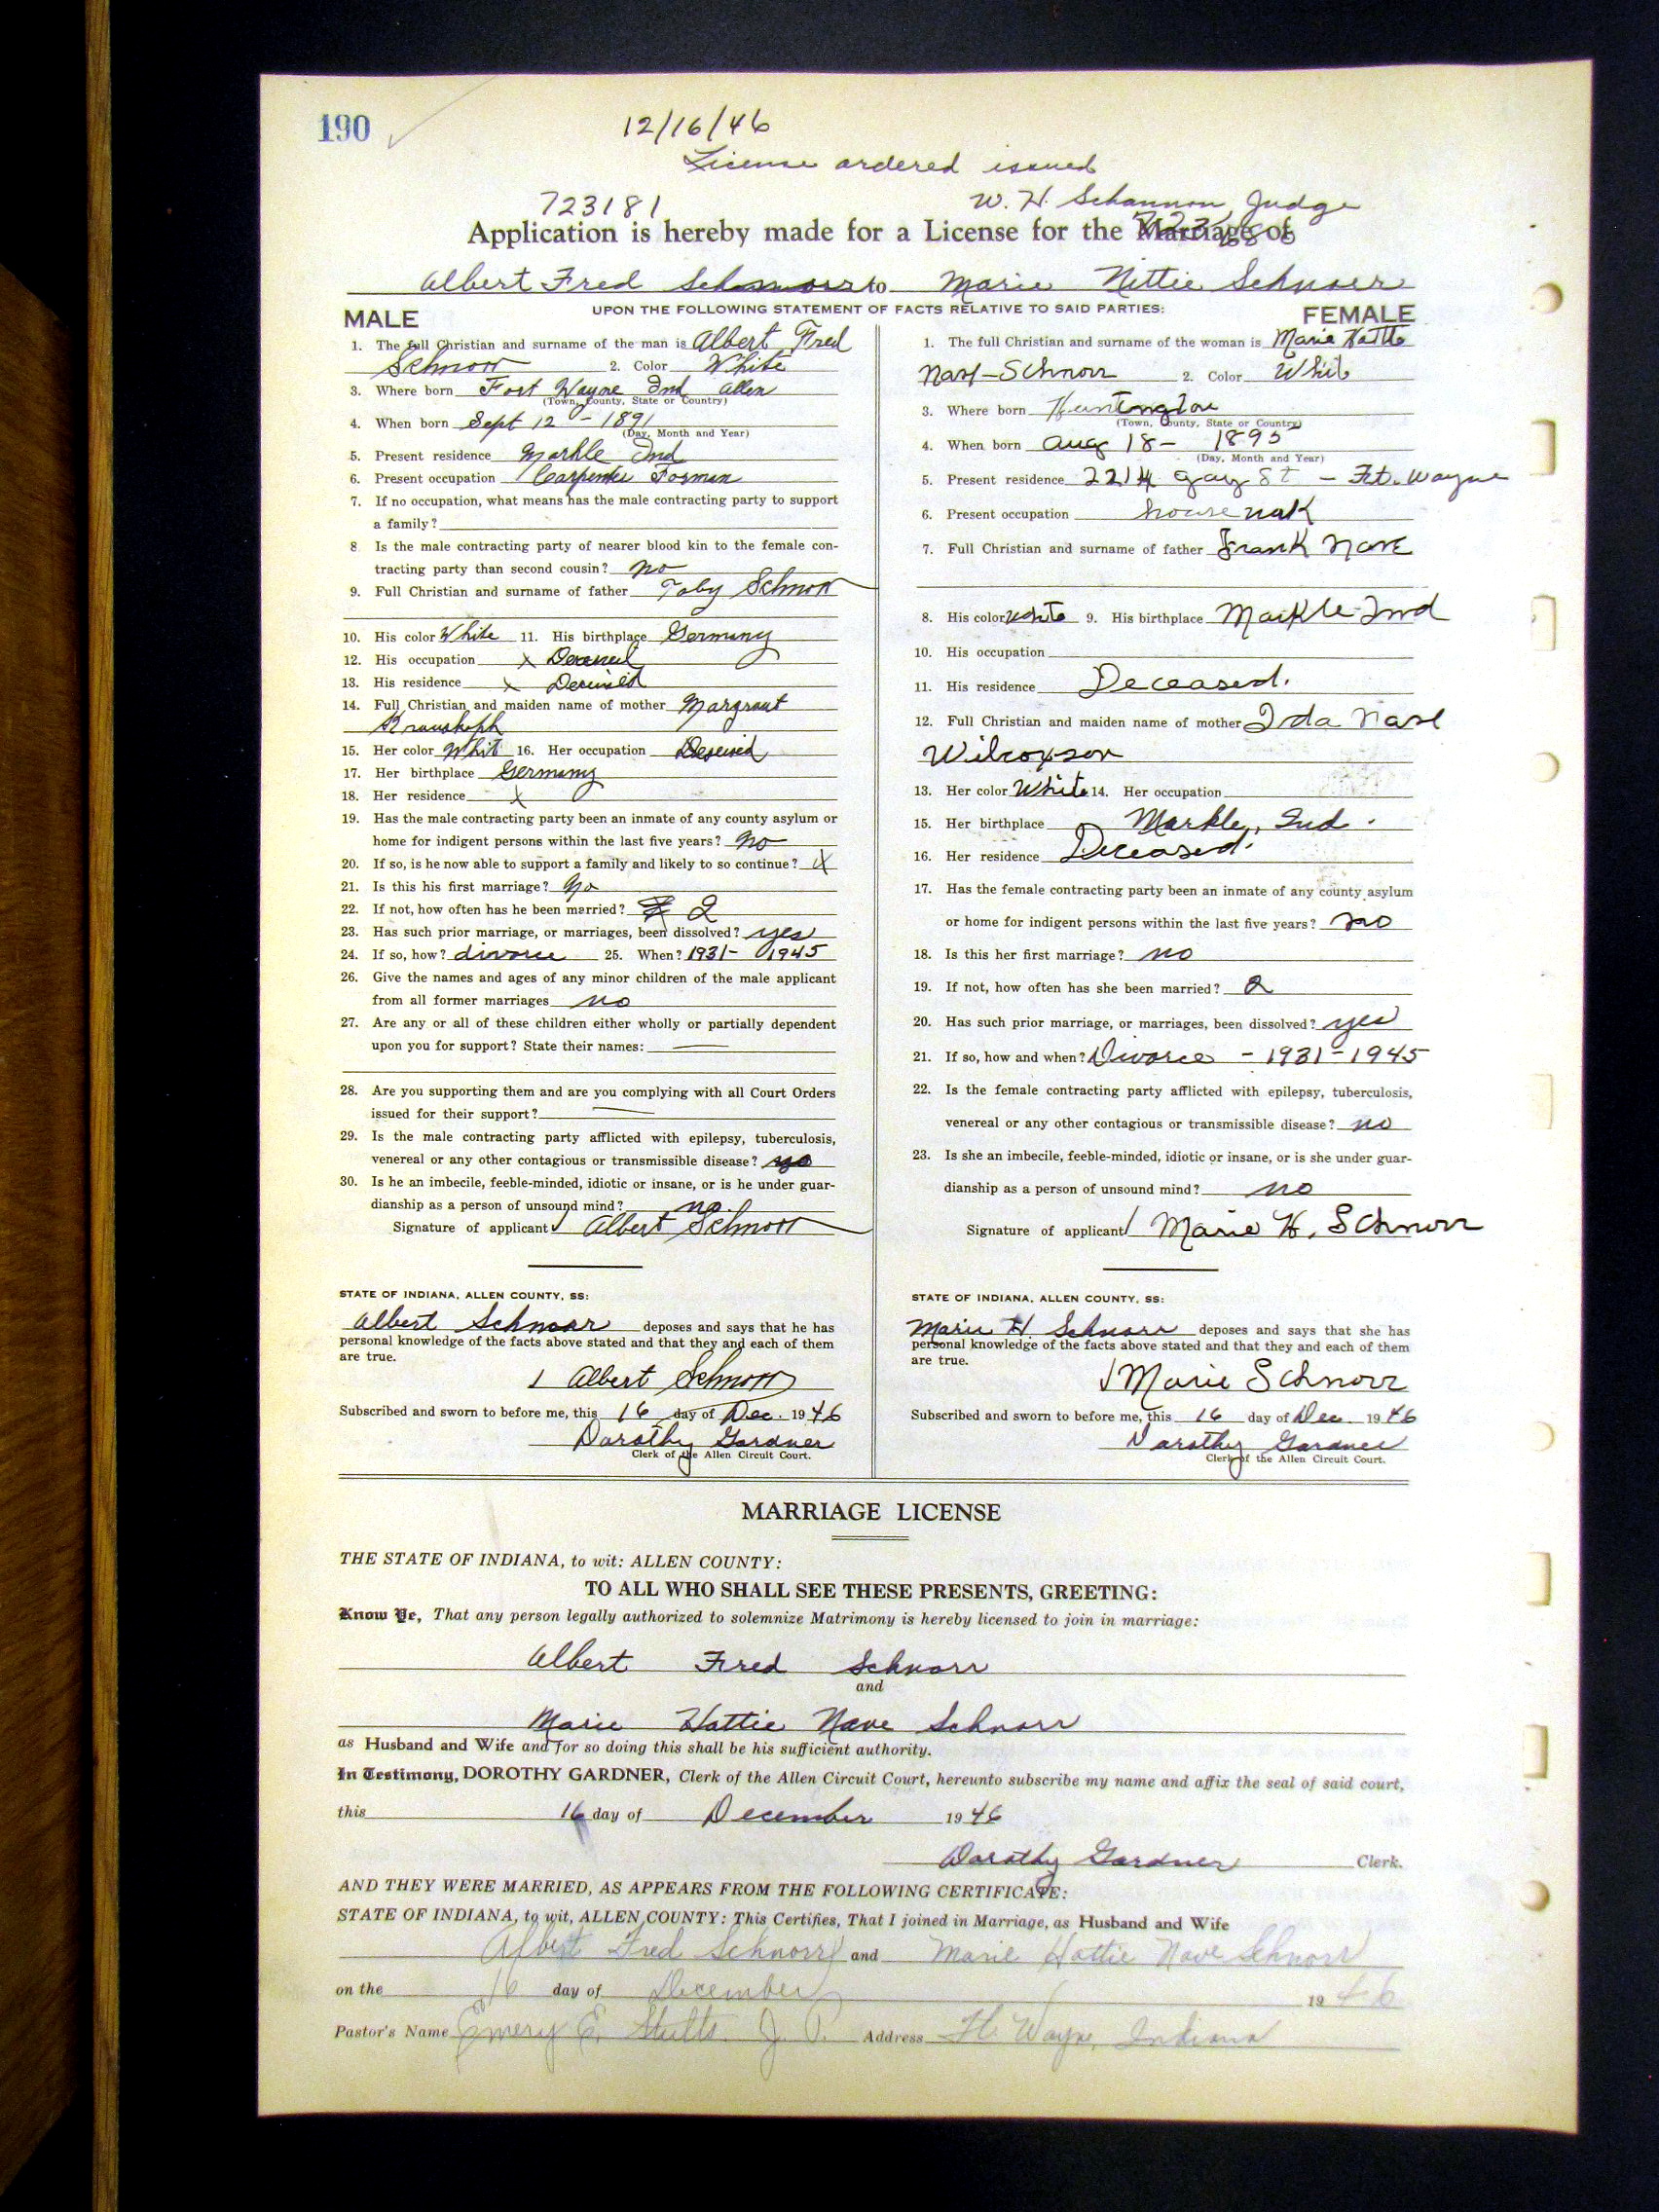 190
12/16/46
License ordered issued
723181 W. H. Schannon, Judge
Application is hereby made for a License for the Marriage of
Albert Fred Schnorr to Marie Nettie Schnorr
UPON THE FOLLOWING STATEMENT OF FACTS RELATIVE TO SAID PARTIES:
MALE
1. The full Christian and surname of the man is Albert Fred
Schnorr 2. Color White
3. Where born Fort Wayne Ind Allen
(Town, County, State or Country)
4. When born Sept 12 - 1891
(Day, Month and Year)
5. Present residence Markle Ind
6. Present occupation Carpenter Forman
7. If no occupation, what means has the male contracting party to support
a family?
8 Is the male contracting party of nearer blood kin to the female con-
tracting party than second cousin? no
9. Full Christian and surname of father Toby Schnorr
10. His color White 11. His birthplace Germany
12. His occupation x
13. His residence x
14. Full Christian and maiden name of mother
15. Her color Whit 16. Her occupation
17. Her birthplace Germany
18. Her residence x
19. Has the male contracting party been an inmate of any county asylum or
home for indigent persons within the last five years? no
20. If so, is he now able to support a family and likely to so continue? x
21. Is this his first marriage? No
22. If not, how often has he been married? 2
23. Has such prior marriage, or marriages, been dissolved? yes
24. If so, how? divorce 25. When? 1931- 1945
26. Give the names and ages of any minor children of the male applicant
from all former marriages no
27. Are any or all of these children either wholly or partially dependent
upon you for support? State their names: —
28. Are you supporting them and are you complying with all Court Orders
issued for their support? —
29. Is the male contracting party afflicted with epilepsy, tuberculosis,
venereal or any other contagious or transmissible disease? no
30. Is he an imbecile, feeble-minded, idiotic or insane, or is he under guar-
dianship as a person of unsound mind? no.
Signature of applicant Albert Schnorr
STATE OF INDIANA, ALLEN COUNTY, SS:
Albert Schnorr deposes and says that he has
personal knowledge of the facts above stated and that they and each of them
are true.
Albert Schnorr
Subscribed and sworn to before me, this 16 day of Dec. 1946
Dorothy Gardner
Clerk of the Allen Circuit Court.
FEMALE
1. The full Christian and surname of the woman is Marie Hattie
Nave-Schnorr 2. Color White
3. Where born Huntington
(Town, County, State or Country)
4. When born Aug 18- 1895
(Day, Month and Year)
5. Present residence 2214 Gay St - Ft. Wayne
6. Present occupation
7. Full Christian and surname of father Frank Nave
8. His color White 9. His birthplace Markle-Ind
10. His occupation
11. His residence Deceased.
12. Full Christian and maiden name of mother Ida Nave
Wilcoxson
13. Her color White 14. Her occupation
15. Her birthplace Markle, Ind.
16. Her residence Deceased.
17. Has the female contracting party been an inmate of any county asylum
or home for indigent persons within the last five years? no
18. Is this her first marriage? no
19. If not, how often has she been married? 2
20. Has such prior marriage, or marriages, been dissolved? yes
21. If so, how and when? Divorce - 1931-1945
22. Is the female contracting party afflicted with epilepsy, tuberculosis,
venereal or any other contagious or transmissible disease? no
23. Is she an imbecile, feeble-minded, idiotic or insane, or is she under guar-
dianship as a person of unsound mind? no
Signature of applicant Marie H. Schnorr
STATE OF INDIANA, ALLEN COUNTY, SS:
Marie H. Schnorr deposes and says that she has
personal knowledge of the facts above stated and that they and each of them
are true.
Marie Schnorr
Subscribed and sworn to before me, this 16 day of Dec. 1946
Dorothy Gardner
Clerk of the Allen Circuit Court.
MARRIAGE LICENSE
THE STATE OF INDIANA, to wit: ALLEN COUNTY:
TO ALL WHO SHALL SEE THESE PRESENTS, GREETING:
Know Ye, That any person legally authorized to solemnize Matrimony is hereby licensed to join in marriage:
Albert Fred Schnorr
and
Marie Hattie Nave Schnorr
as Husband and Wife and for so doing this shall be his sufficient authority.
In Testimony, DOROTHY GARDNER, Clerk of the Allen Circuit Court, hereunto subscribe my name and affix the seal of said court,
this 16 day of December 1946
Dorothy Gardner Clerk.
AND THEY WERE MARRIED, AS APPEARS FROM THE FOLLOWING CERTIFICATE:
STATE OF INDIANA, to wit, ALLEN COUNTY: This Certifies, That I joined in Marriage, as Husband and Wife
Albert Fred Schnorr and Marie Hattie Nave Schnorr
on the 16 day of December 1946
Pastor's Name Emery E. Stults J. P. Address Ft. Wayne, Indiana